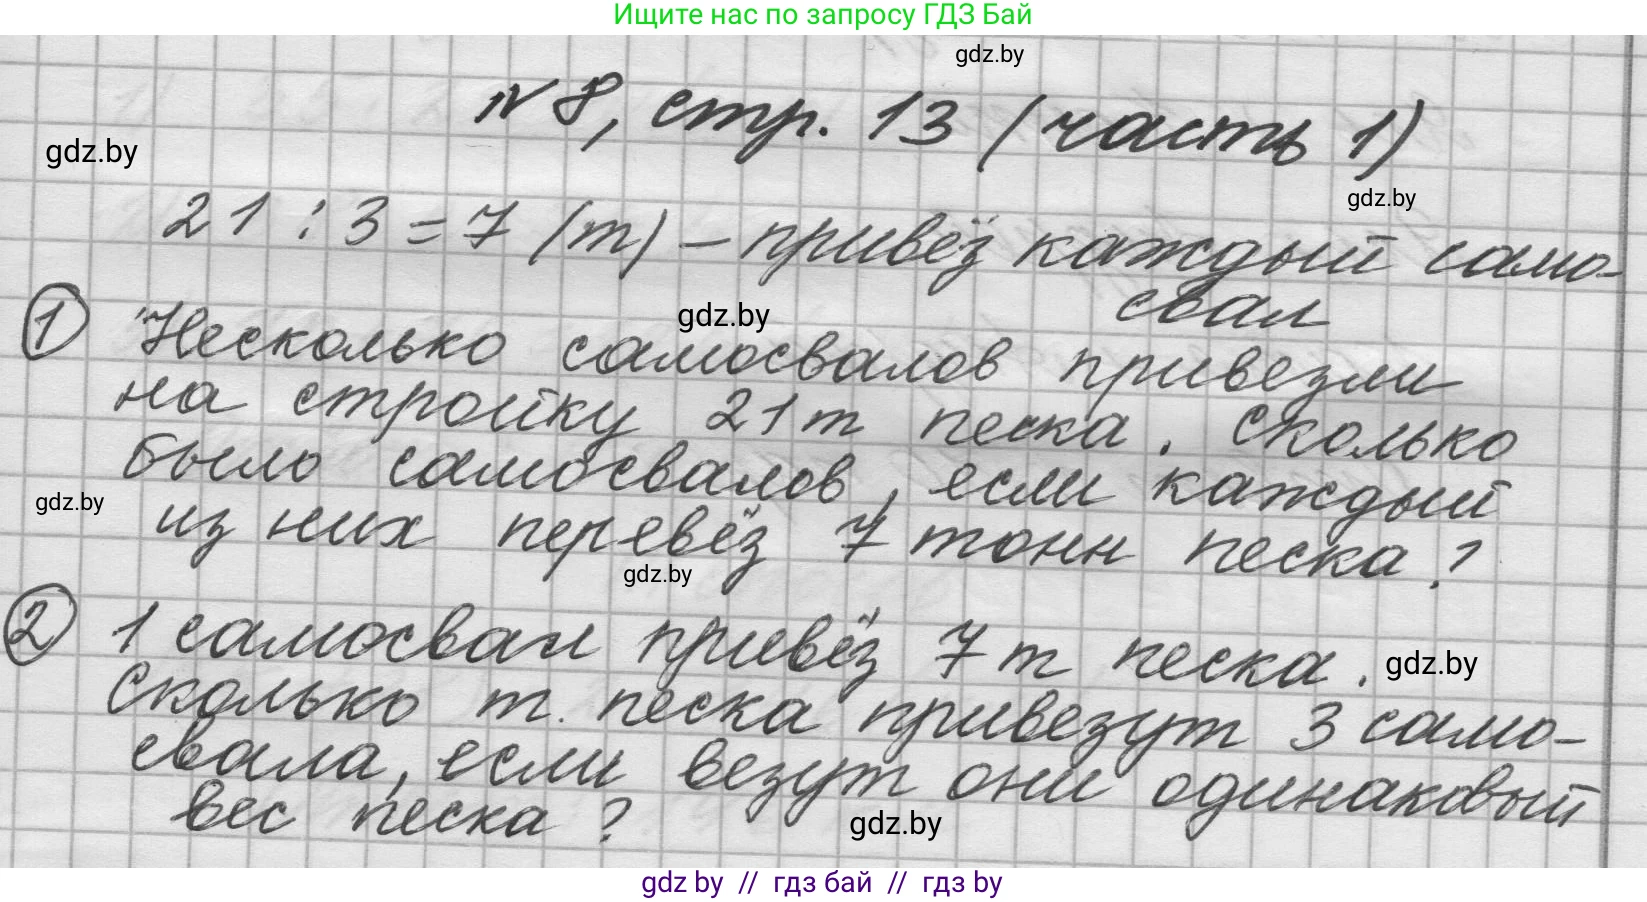 Ищите нас по запросу ГДЗ Бай
gdz.by
№ 8, стр. 13 (часть 1)
gdz.by
gdz.by
21 : 3 = 7 (т) – привёз каждый само-
свал
gdz.by
1 Несколько самосвалов привезли
на стройку 21 т песка. Сколько
было самосвалов, если каждый
gdz.by
из них перевёз 7 тонн песка?
gdz.by
2 1 самосвал привёз 7 т песка.
gdz.by
Сколько т. песка привезут 3 само-
свала, если везут они одинаковый
вес песка?
gdz.by
gdz by // гдз бай // гдз by